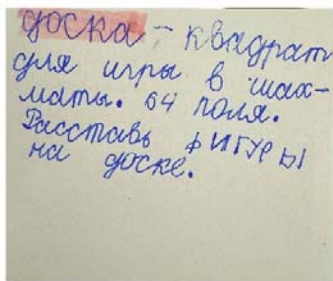 доска – квадрат
для игры в шах-
маты. 64 поля.
Расставь фИГУРЫ
на доске.